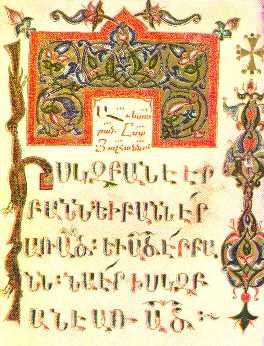 Աւետա
րան Ըստ
ԻՍԿԶԲԱՆԷ ԷՐ
ԲԱՆՆ ԵՒ ԲԱՆՆ ԷՐ
ԱՌ ԱԾ։ ԵՒ ԱԾ ԷՐ ԲԱ
ՆՆ։ ՆԱ ԷՐ ԻՍԿԶԲ
ԱՆԷ ԱՌ ԱԾ։